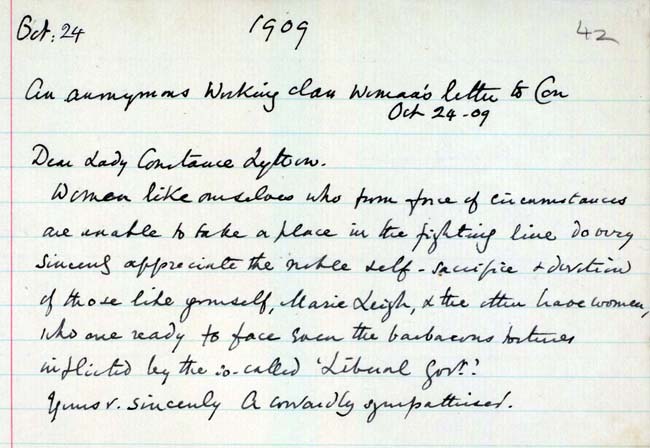 Oct: 24 1909 42
An anonymous Working class Woman's letter to Con
Oct 24-09
Dear Lady Constance Lytton.
Women like ourselves who from force of circumstances
are unable to take a place in the fighting line do very
sincerely appreciate the noble self-sacrifice & devotion
of those like yourself, Marie Leigh, & the other brave women,
who are ready to face even the barbarous tortures
inflicted by the so-called 'Liberal Govt.'
Yours v. sincerely A cowardly sympathiser.